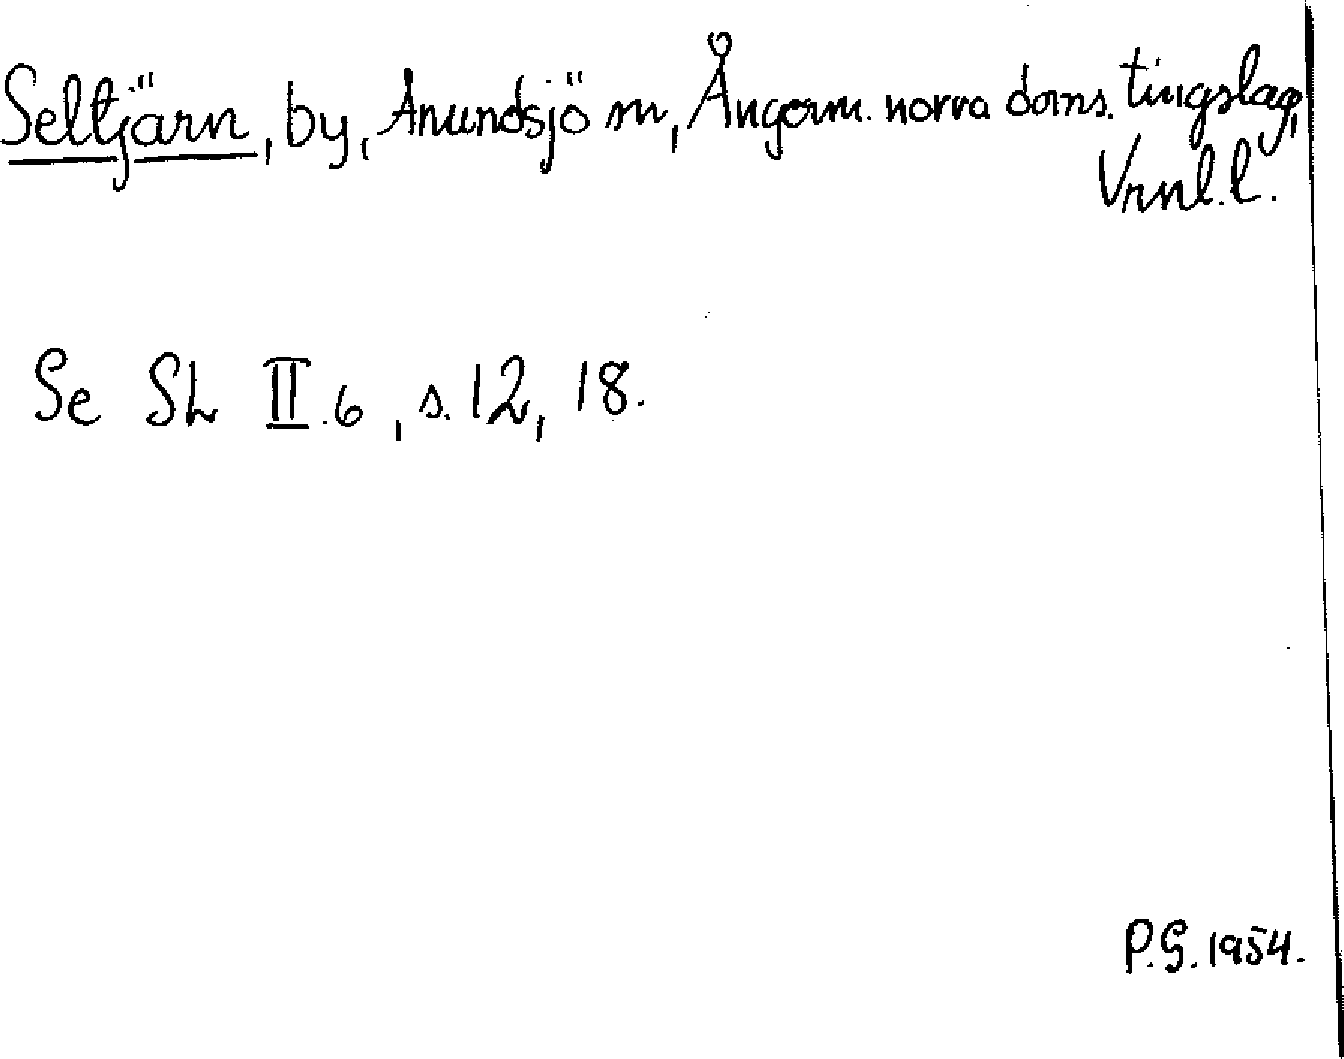 Seltjärn, by, Anundsjö sn, Ångerm. norra doms. tingslag,
Vrnl.l.
Se SL II.6, s. 12, 18.
P.G. 1954.